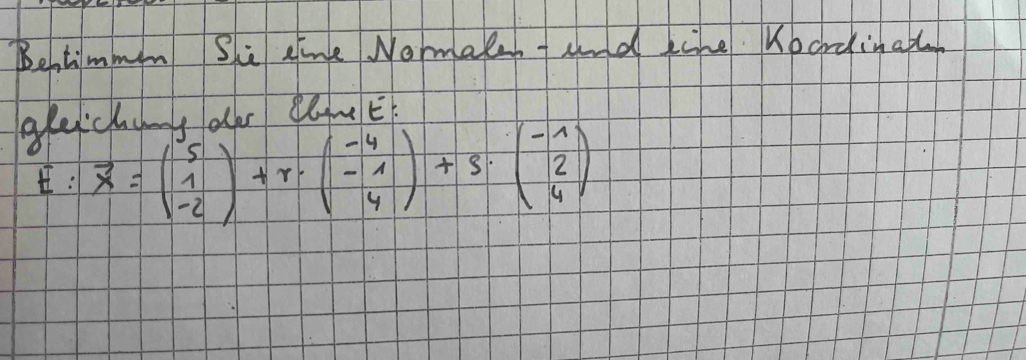 Bestimmen Sie eine Normalen- und eine Koordinaten
gleichung der Ebene E:
E: x⃗ = (5 1 -2) + r· (-4 -1 4) + s· (-1 2 4)